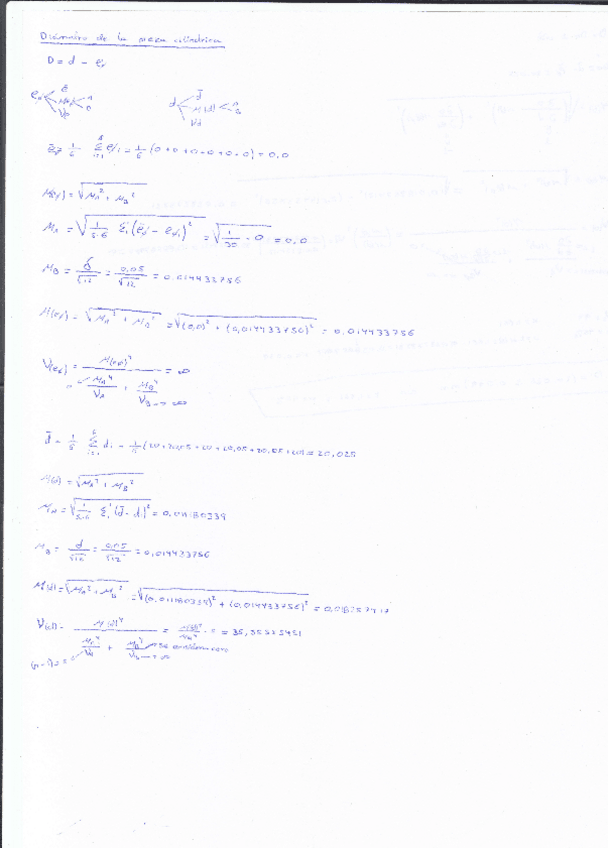 Diámetro de la pieza cilíndrica
D = d - e₀
e₀ < ē μ(e₀) < A B ν
d < d̄ μ(d) < A B νd
ē₀ = 1/6 Σ(i=1..6) e₀i = 1/6 (0+0+0+0+0+0) = 0,0
μ(e₀) = √(μA² + μB²)
μA = √(1/(5·6) Σi (ē₀ - e₀i)²) = √(1/30 · 0) = 0,0
μB = d/√12 = 0,05/√12 = 0,014433756
μ(e₀) = √(μA² + μB²) = √((0,0)² + (0,014433756)²) = 0,014433756
ν(e₀) = μ(e₀)² / (μA⁴/νA + μB⁴/νB → ∞) = ∞
d̄ = 1/6 Σ(i=1..6) di = 1/6 (20 + 20,05 + 20 + 20,05 + 20,05 + 20) = 20,025
μ(d) = √(μA² + μB²)
μA = √(1/(5·6) Σi (d̄ - di)²) = 0,011180339
μB = d/√12 = 0,05/√12 = 0,014433756
μ(d) = √(μA² + μB²) = √((0,011180339)² + (0,014433756)²) = 0,0182574
ν(d) = μ(d)⁴ / (μA⁴/νA + μB⁴/νB → ∞) = μ(d)⁴/μA⁴ · 5 = 35,5555
se considera cero
(n-1) =